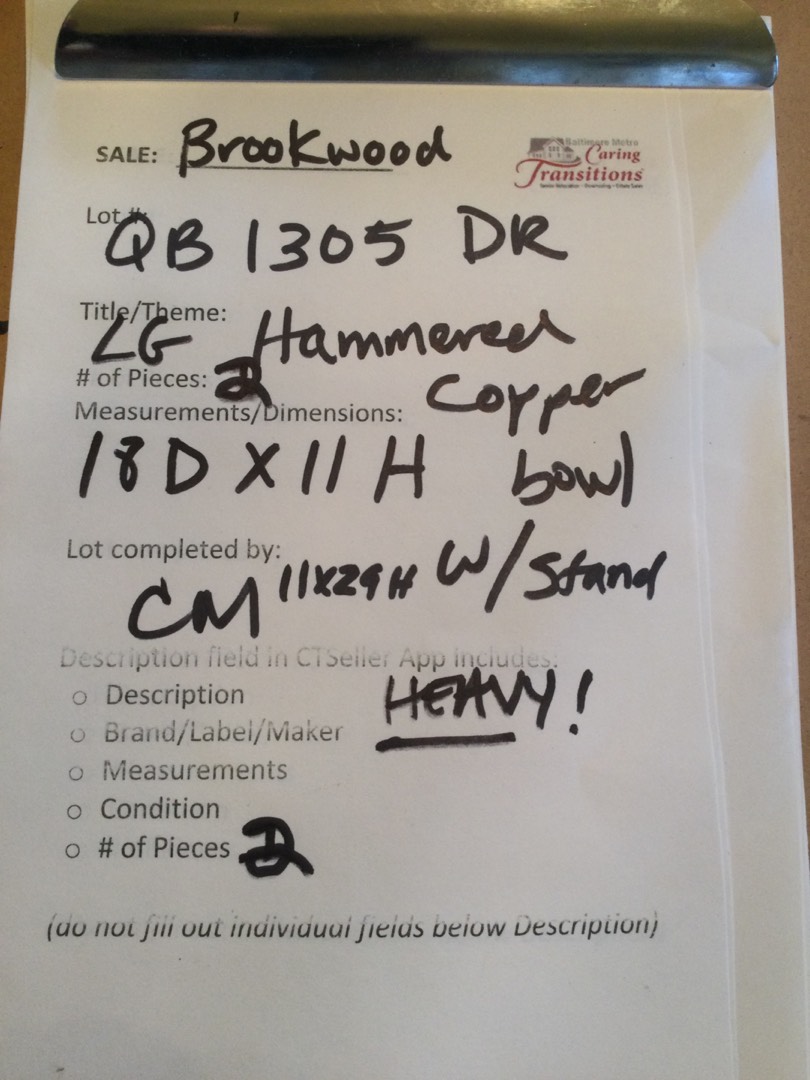 SALE: Brookwood
Baltimore Metro
Caring
Transitions
Lot #:
QB 1305 DR
Title/Theme:
LG Hammered
# of Pieces: 2
Copper
Measurements/Dimensions:
18D X 11 H bowl
Lot completed by:
CM 11X29H W/Stand
Description field in CTSeller App includes:
HEAVY!
○ Description
○ Brand/Label/Maker
○ Measurements
○ Condition
○ # of Pieces 2
(do not fill out individual fields below Description)